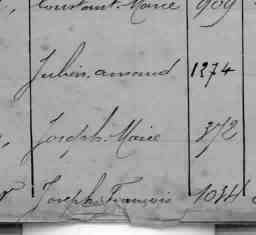 Constant Marie 909
Julien armand 1274
Joseph Marie 372
Joseph François 1034